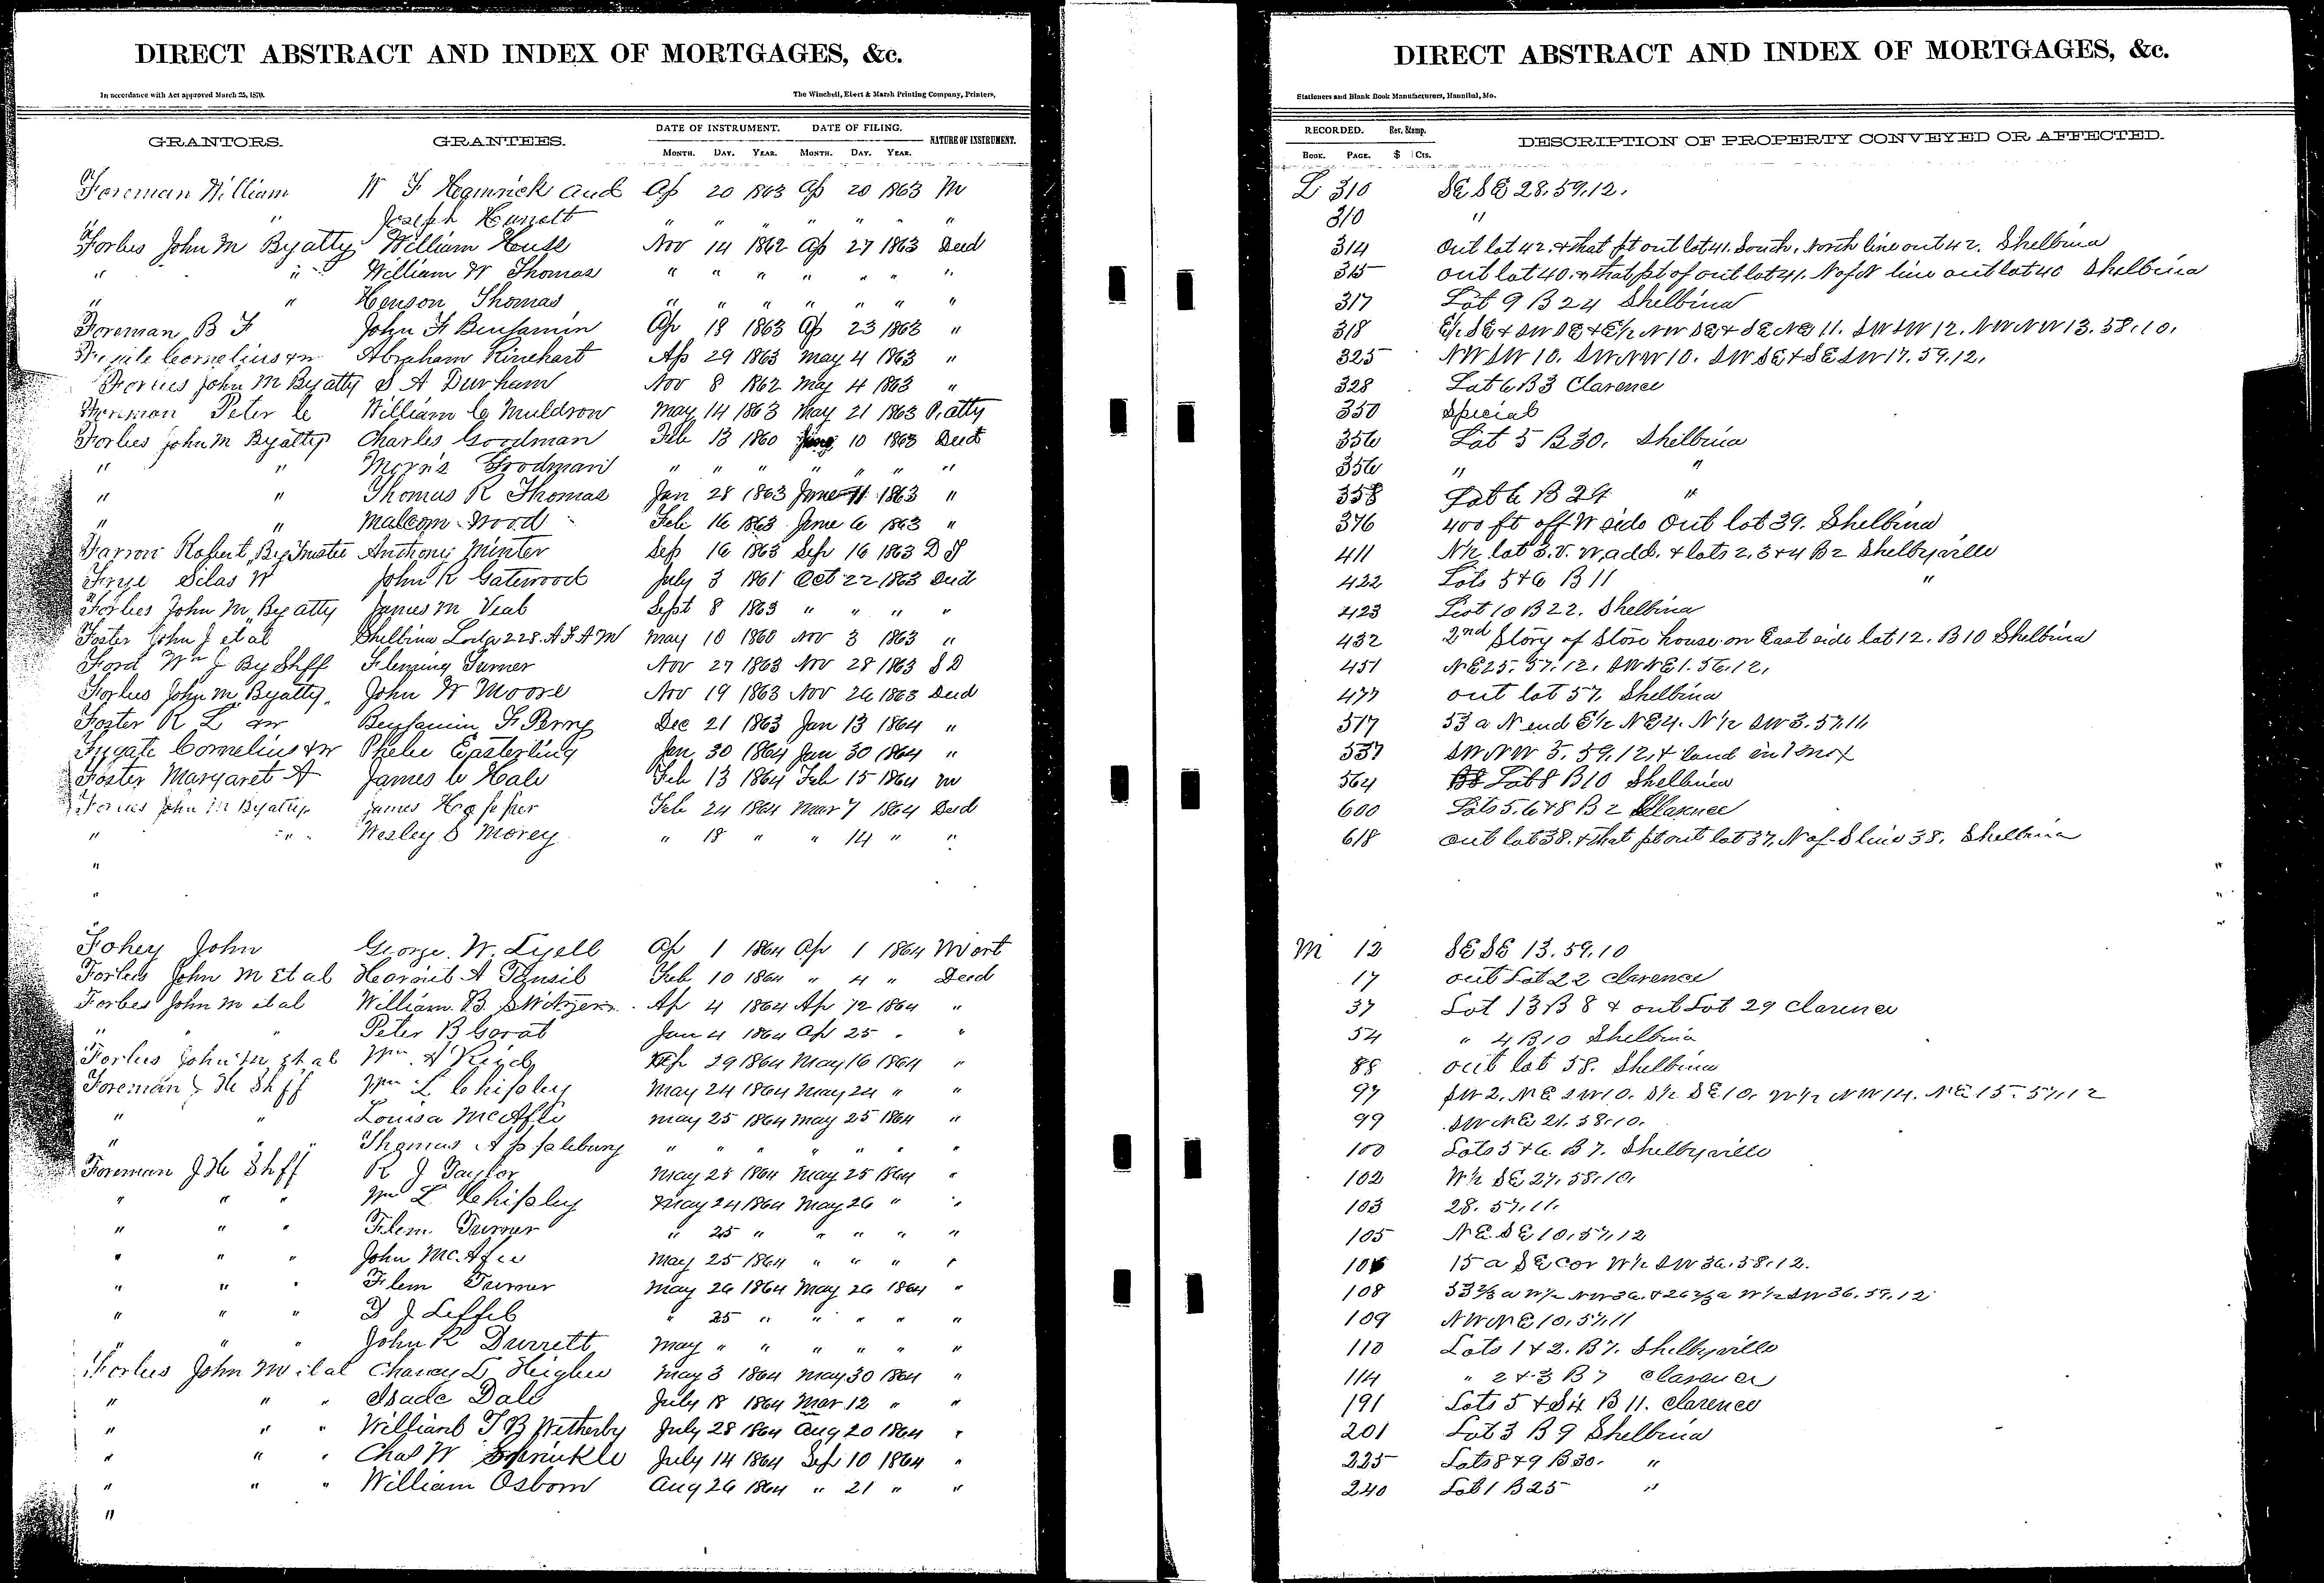 DIRECT ABSTRACT AND INDEX OF MORTGAGES, &c.
In accordance with Act approved March 25, 1870. The Winchell, Ebert & Marsh Printing Company, Printers,
GRANTORS. GRANTEES. DATE OF INSTRUMENT. DATE OF FILING. NATURE OF INSTRUMENT.
MONTH. DAY. YEAR. MONTH. DAY. YEAR.
Foreman William W F Hegmrick and Ap 20 1863 Ap 20 1863 M
" Joseph Hunolt " " " " " " "
Forbes John M By atty William Huss Nov 14 1862 Ap 27 1863 Deed
" " William W Thomas " " " " " " "
" " Henson Thomas " " " " " " "
Foreman B F John F Benjamin Ap 18 1863 Ap 23 1863 "
Cornelius & w Abraham Rinehart Ap 29 1863 May 4 1863 "
Forbes John M By atty S A Durham Nov 8 1862 May 4 1863 "
Foreman Peter C William C Muldrow May 14 1863 May 21 1863 P. atty
Forbes John M By atty Charles Goodman Feb 13 1860 June 10 1863 Deed
" " Morris Goodman " " " " " " "
" " Thomas R Thomas Jan 28 1863 June 11 1863 "
" " Malcom Wood Feb 16 1863 June 6 1863 "
Farron Robert, By Trustee Anthony Minter Sep 16 1863 Sep 16 1863 D T
Frye Silas W John R Gatewood July 3 1861 Oct 22 1863 Deed
Forbes John M, By atty James M Veal Sept 8 1863 " " " "
Foster John J et al Shelbina Lodge 228. A F A M May 10 1860 Nov 3 1863 "
Ford Wm J By Shff Fleming Turner Nov 27 1863 Nov 28 1863 S D
Forbes John M, By atty. John W Moore Nov 19 1863 Nov 26 1863 Deed
Foster R L & w Benjamin F Perry Dec 21 1863 Jan 13 1864 "
Fugate Cornelius & w Phebe Easterling Jan 30 1864 Jan 30 1864 "
Foster Margaret A James C Hale Feb 13 1864 Feb 15 1864 M
Forbes John M By atty James Feb 24 1864 Mar 7 1864 Deed
" " Wesley S Morey " 18 " " 14 " "
"
"
Fohey John George W. Lyell Ap 1 1864 Ap 1 1864 Mort
Forbes John M et al Harriet A Tansil Feb 10 1864 " 4 " Deed
Forbes John M et al William B. Switzer Ap 4 1864 Ap 12 1864 "
" " Peter B Jan 4 1864 Ap 25 " "
Forbes John M et al Wm A Sep 29 1864 May 16 1864 "
Foreman J H Shff Wm L Chipley May 24 1864 May 24 " "
" " Louisa McAfee May 25 1864 May 25 1864 "
" " " Thomas Applebury " " " " " "
Foreman J H Shff R J Taylor May 25 1864 May 25 1864 "
" " " Wm L Chipley May 24 1864 May 26 " "
" " " Flem. Turner " 25 " " " " "
" " " John McAfee May 25 1864 " " " "
" " " Flem Turner May 26 1864 May 26 1864 "
" " " D J Leffel " 25 " " " " "
" " " John R Durrett May " " " " " "
Forbes John M et al L Higbee May 3 1864 May 30 1864 "
" " " Dale July 18 1864 Mar 12 " "
" " " William T B Wetherby July 28 1864 Aug 20 1864 "
" " " Chas W Sprinkle July 14 1864 Sep 10 1864 "
" " " William Osborn Aug 26 1864 " 21 " "
"
DIRECT ABSTRACT AND INDEX OF MORTGAGES, &c.
Stationers and Blank Book Manufacturers, Hannibal, Mo.
RECORDED. Rev. Stamp. DESCRIPTION OF PROPERTY CONVEYED OR AFFECTED.
BOOK. PAGE. $ Cts.
L 310 SE SE 28. 59. 12.
310 "
314 Out lot 42. & that pt out lot 41. South. North line out 42. Shelbina
315 out lot 40. & that pt of out lot 41. N of N line out lot 40 Shelbina
317 Lot 9 B 24 Shelbina
318 E½ SE & SW SE & E½ NW SE & SE NE 11. SW SW 12. NW NW 13. 58. 10.
325 NW SW 10. SW NW 10. SW SE & SE SW 17. 59. 12.
328 Lot 6 B 3 Clarence
350 Special
356 Lot 5 B 30. Shelbina
356 " "
358 Lot 6 B 24 "
376 400 ft off W side Out lot 39. Shelbina
411 N½ lot 3. V. W. add. & lots 2, 3 & 4 B 2 Shelbyville
422 Lots 5 & 6 B 11 "
423 Lot 10 B 22. Shelbina
432 2nd Story of Store house on East side lot 12. B 10 Shelbina
451 NE 25. 57. 12. SW NE 1. 56. 12.
477 out lot 57. Shelbina
517 53 a N end E½ NE 4. N½ SW 3. 57. 11
537 SW NW 3. 59. 12, & land in Knox
564 Lot 8 B 10 Shelbina
600 Lots 5. 6 & 8 B 2 Clarence
618 Out lot 38. & that pt out lot 37, N of S line 38. Shelbina
M 12 SE SE 13. 59. 10
17 out Lot 22 Clarence
37 Lot 13 B 8 & out Lot 29 Clarence
54 " 4 B 10 Shelbina
88 out lot 58. Shelbina
97 SW 2. NE SW 10. S½ SE 10. W½ NW 14. NE 15. 57. 12
99 SW NE 21. 58. 10.
100 Lots 5 & 6. B 7. Shelbyville
102 W½ SE 27. 58. 10.
103 28. 57. 11.
105 NE SE 10. 57. 12
106 15 a SE cor W½ SW 36. 58. 12.
108 53⅔ a W½ NW 36. & 26⅔ a W½ SW 36. 59. 12
109 NW NE 10. 57. 11
110 Lots 1 & 2. B 7. Shelbyville
114 " 2 & 3 B 7 Clarence
191 Lots 5 & B 11. Clarence
201 Lot 3 B 9 Shelbina
225 Lots 8 & 9 B 30. "
240 Lot 1 B 25 "